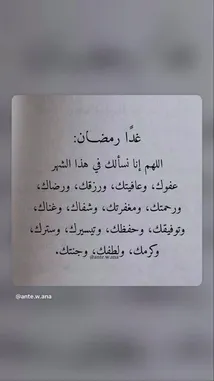 غدًا رمضان:
اللهم إنا نسألك في هذا الشهر
عفوك، وعافيتك، ورزقك، ورضاك،
ورحمتك، ومغفرتك، وشفاك، وغناك،
وتوفيقك، وحفظك، وتيسيرك، وسترك،
وكرمك، ولطفك، وجنتك.
@ante.w.ana
@ante.w.ana